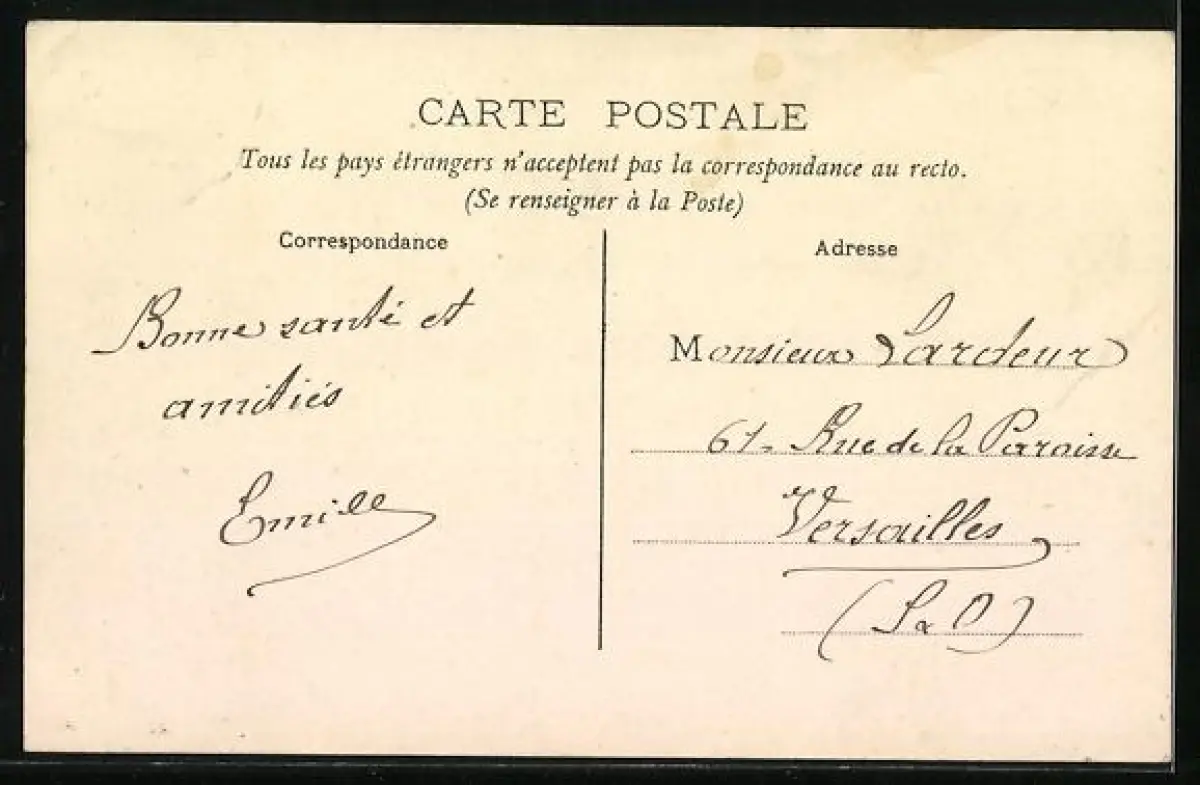 CARTE POSTALE
Tous les pays étrangers n'acceptent pas la correspondance au recto.
(Se renseigner à la Poste)
Correspondance
Bonne santé et
amitiés
Emile
Adresse
Monsieur Lardeur
61. Rue de la Paroisse
Versailles
(S & O)